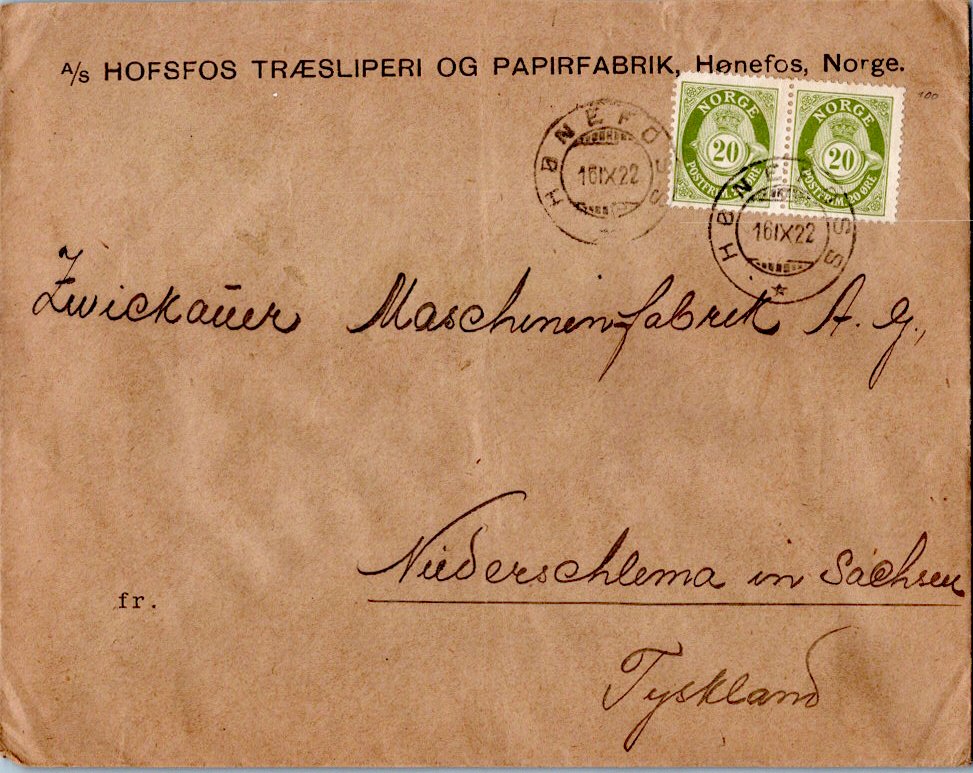 A/S HOFSFOS TRÆSLIPERI OG PAPIRFABRIK, Hønefos, Norge.
100
NORGE
20
POSTFRIM. 20 ØRE
NORGE
20
POSTFRIM. 20 ØRE
HØNEFOSS
16 IX 22
HØNEFOSS
16 IX 22
Zwickauer Maschinenfabrik A. G.,
Niederschlema in Sachsen
fr.
Tyskland